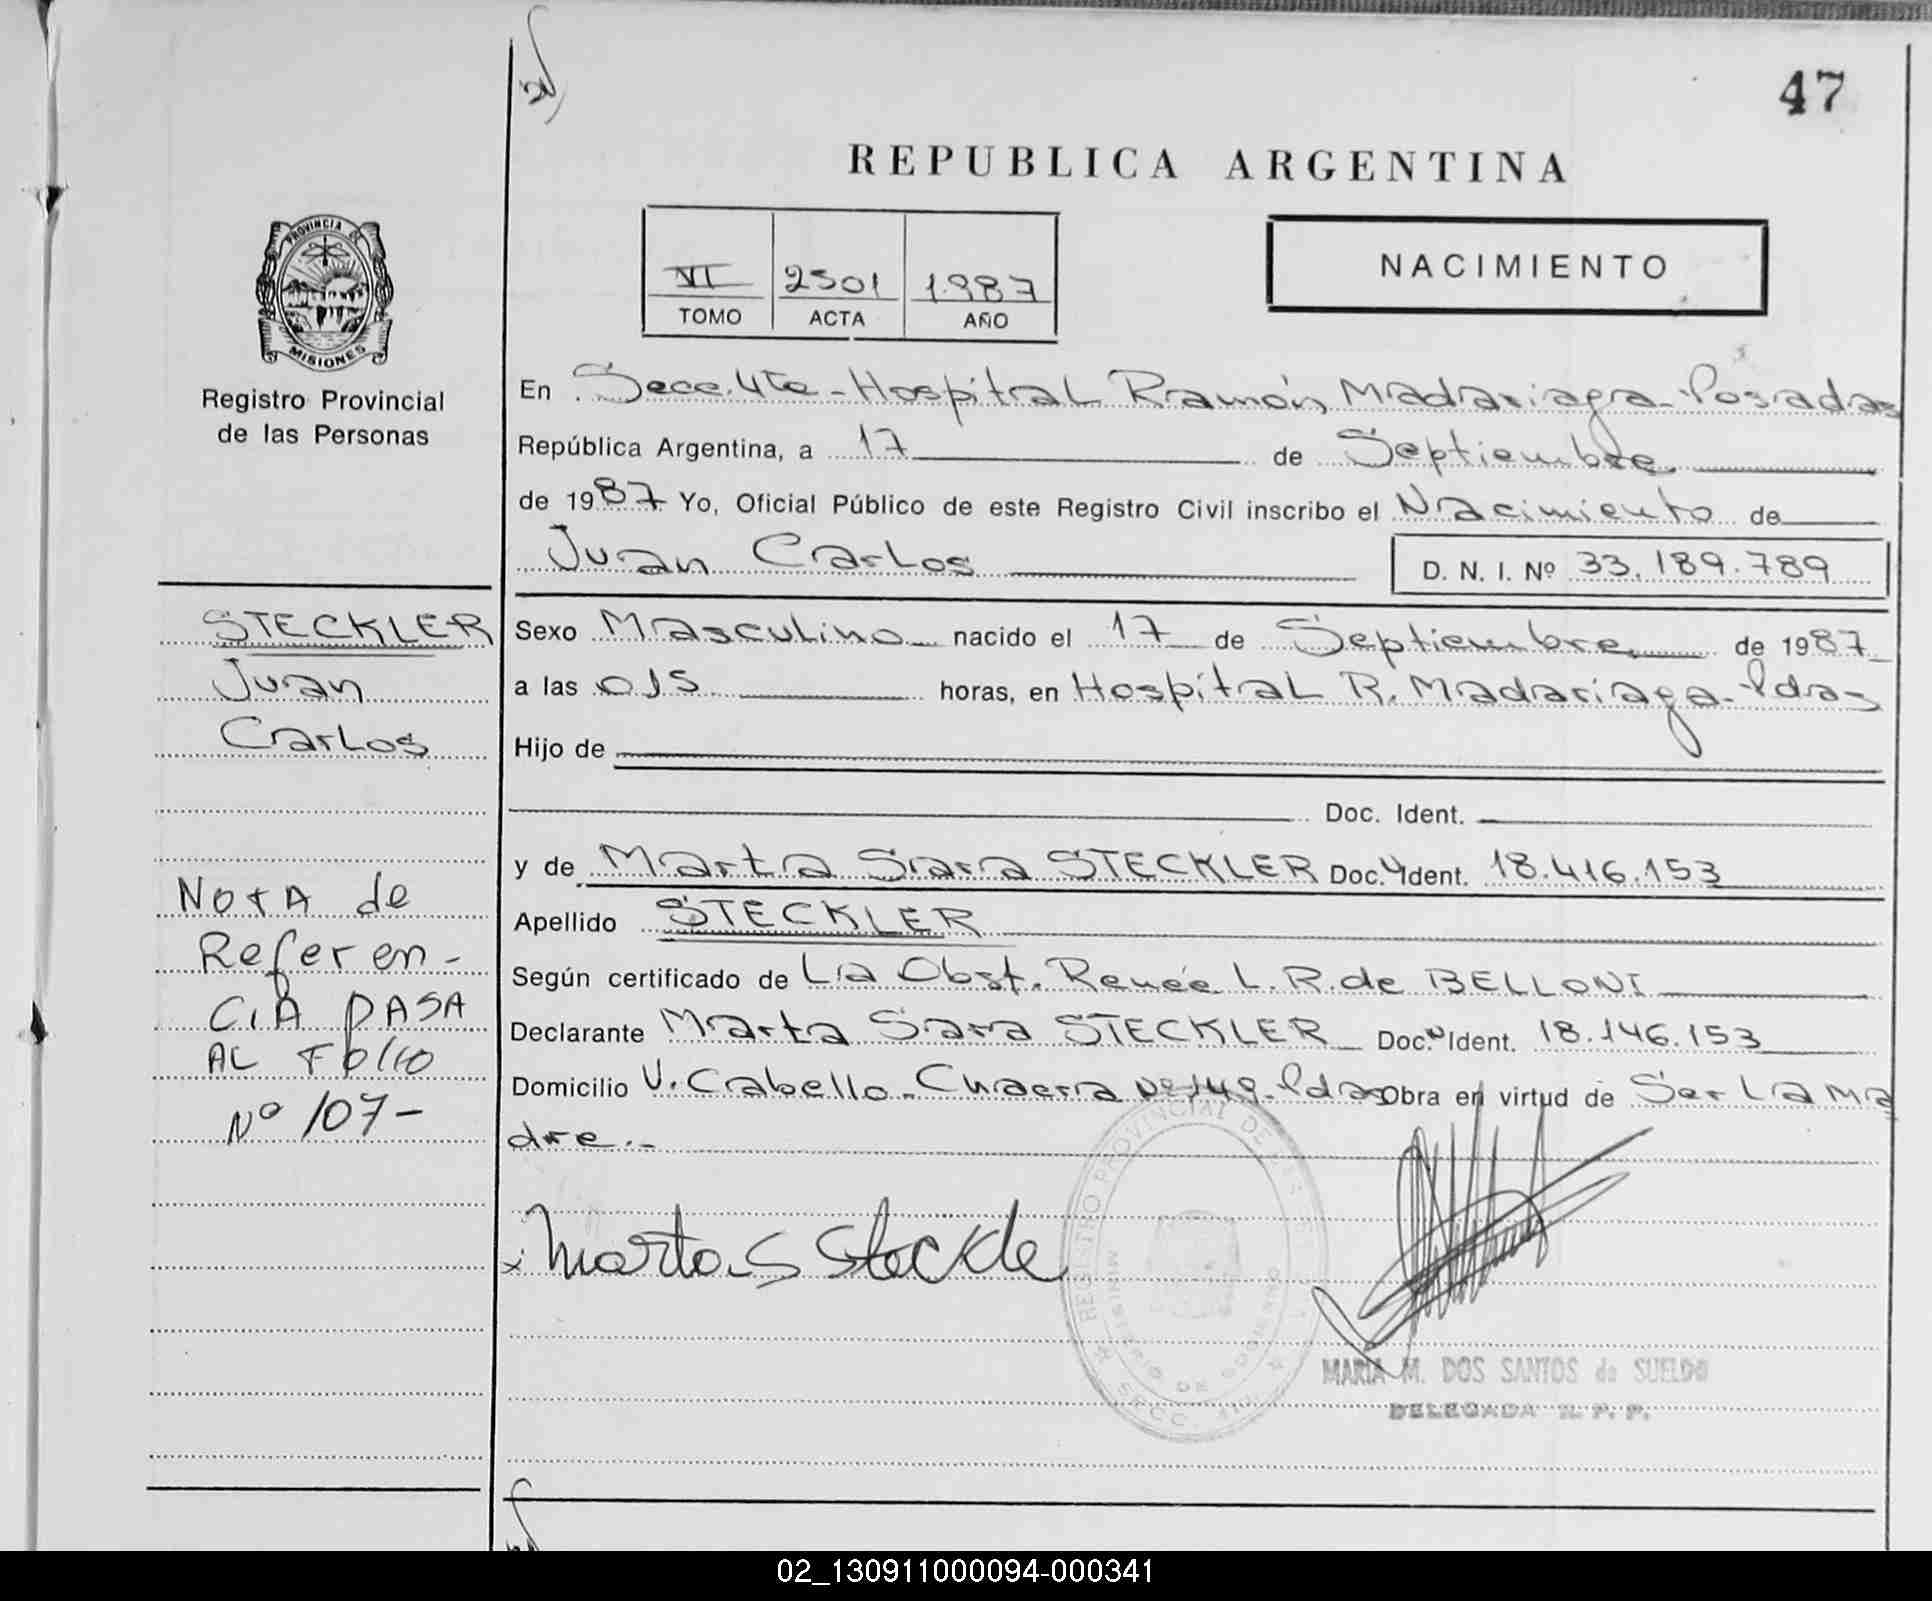 47
REPUBLICA ARGENTINA
VI 2501 1987
TOMO ACTA AÑO
NACIMIENTO
PROVINCIA DE
MISIONES
Registro Provincial
de las Personas
En Secc. 4ta - Hospital Ramón Madariaga - Posadas
República Argentina, a 17 de Septiembre
de 1987 Yo, Oficial Público de este Registro Civil inscribo el Nacimiento de
Juan Carlos D. N. I. Nº 33.189.789
STECKLER
Juan
Carlos
Sexo Masculino nacido el 17 de Septiembre de 1987
a las 015 horas, en Hospital R. Madariaga - Pdas
Hijo de
Doc. Ident.
y de Marta Sara STECKLER Doc. Ident. 18.416.153
Apellido STECKLER
Según certificado de La Obst. Renée L. R. de BELLONI
Declarante Marta Sara STECKLER Doc. Ident. 18.146.153
Domicilio V. Cabello - Chacra Nº 149 - Pdas Obra en virtud de Ser La Ma
dre.-
NOTA de
Referen-
CIA PASA
AL FOLIO
Nº 107-
Marta S Steckle
REGISTRO PROVINCIAL DE LAS
MINISTERIO DE GOBIERNO
SECC.
MARIA M. DOS SANTOS de SUELDO
DELEGADA R. P. P.
02_130911000094-000341